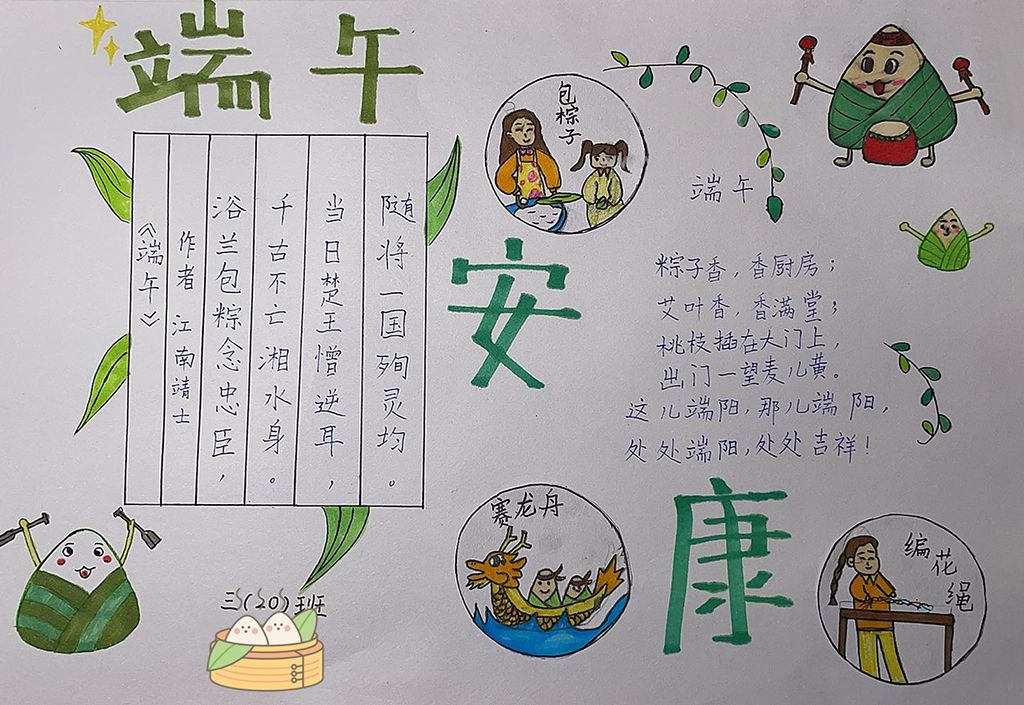 端午
安
康
《端午》
作者 江南靖士
浴兰包粽念忠臣，
千古不亡湘水身。
当日楚王憎逆耳，
随将一国殉灵均。
包粽子
端午
粽子香，香厨房；
艾叶香，香满堂；
桃枝插在大门上，
出门一望麦儿黄。
这儿端阳，那儿端阳，
处处端阳，处处吉祥！
赛龙舟
编花绳
三(20)班